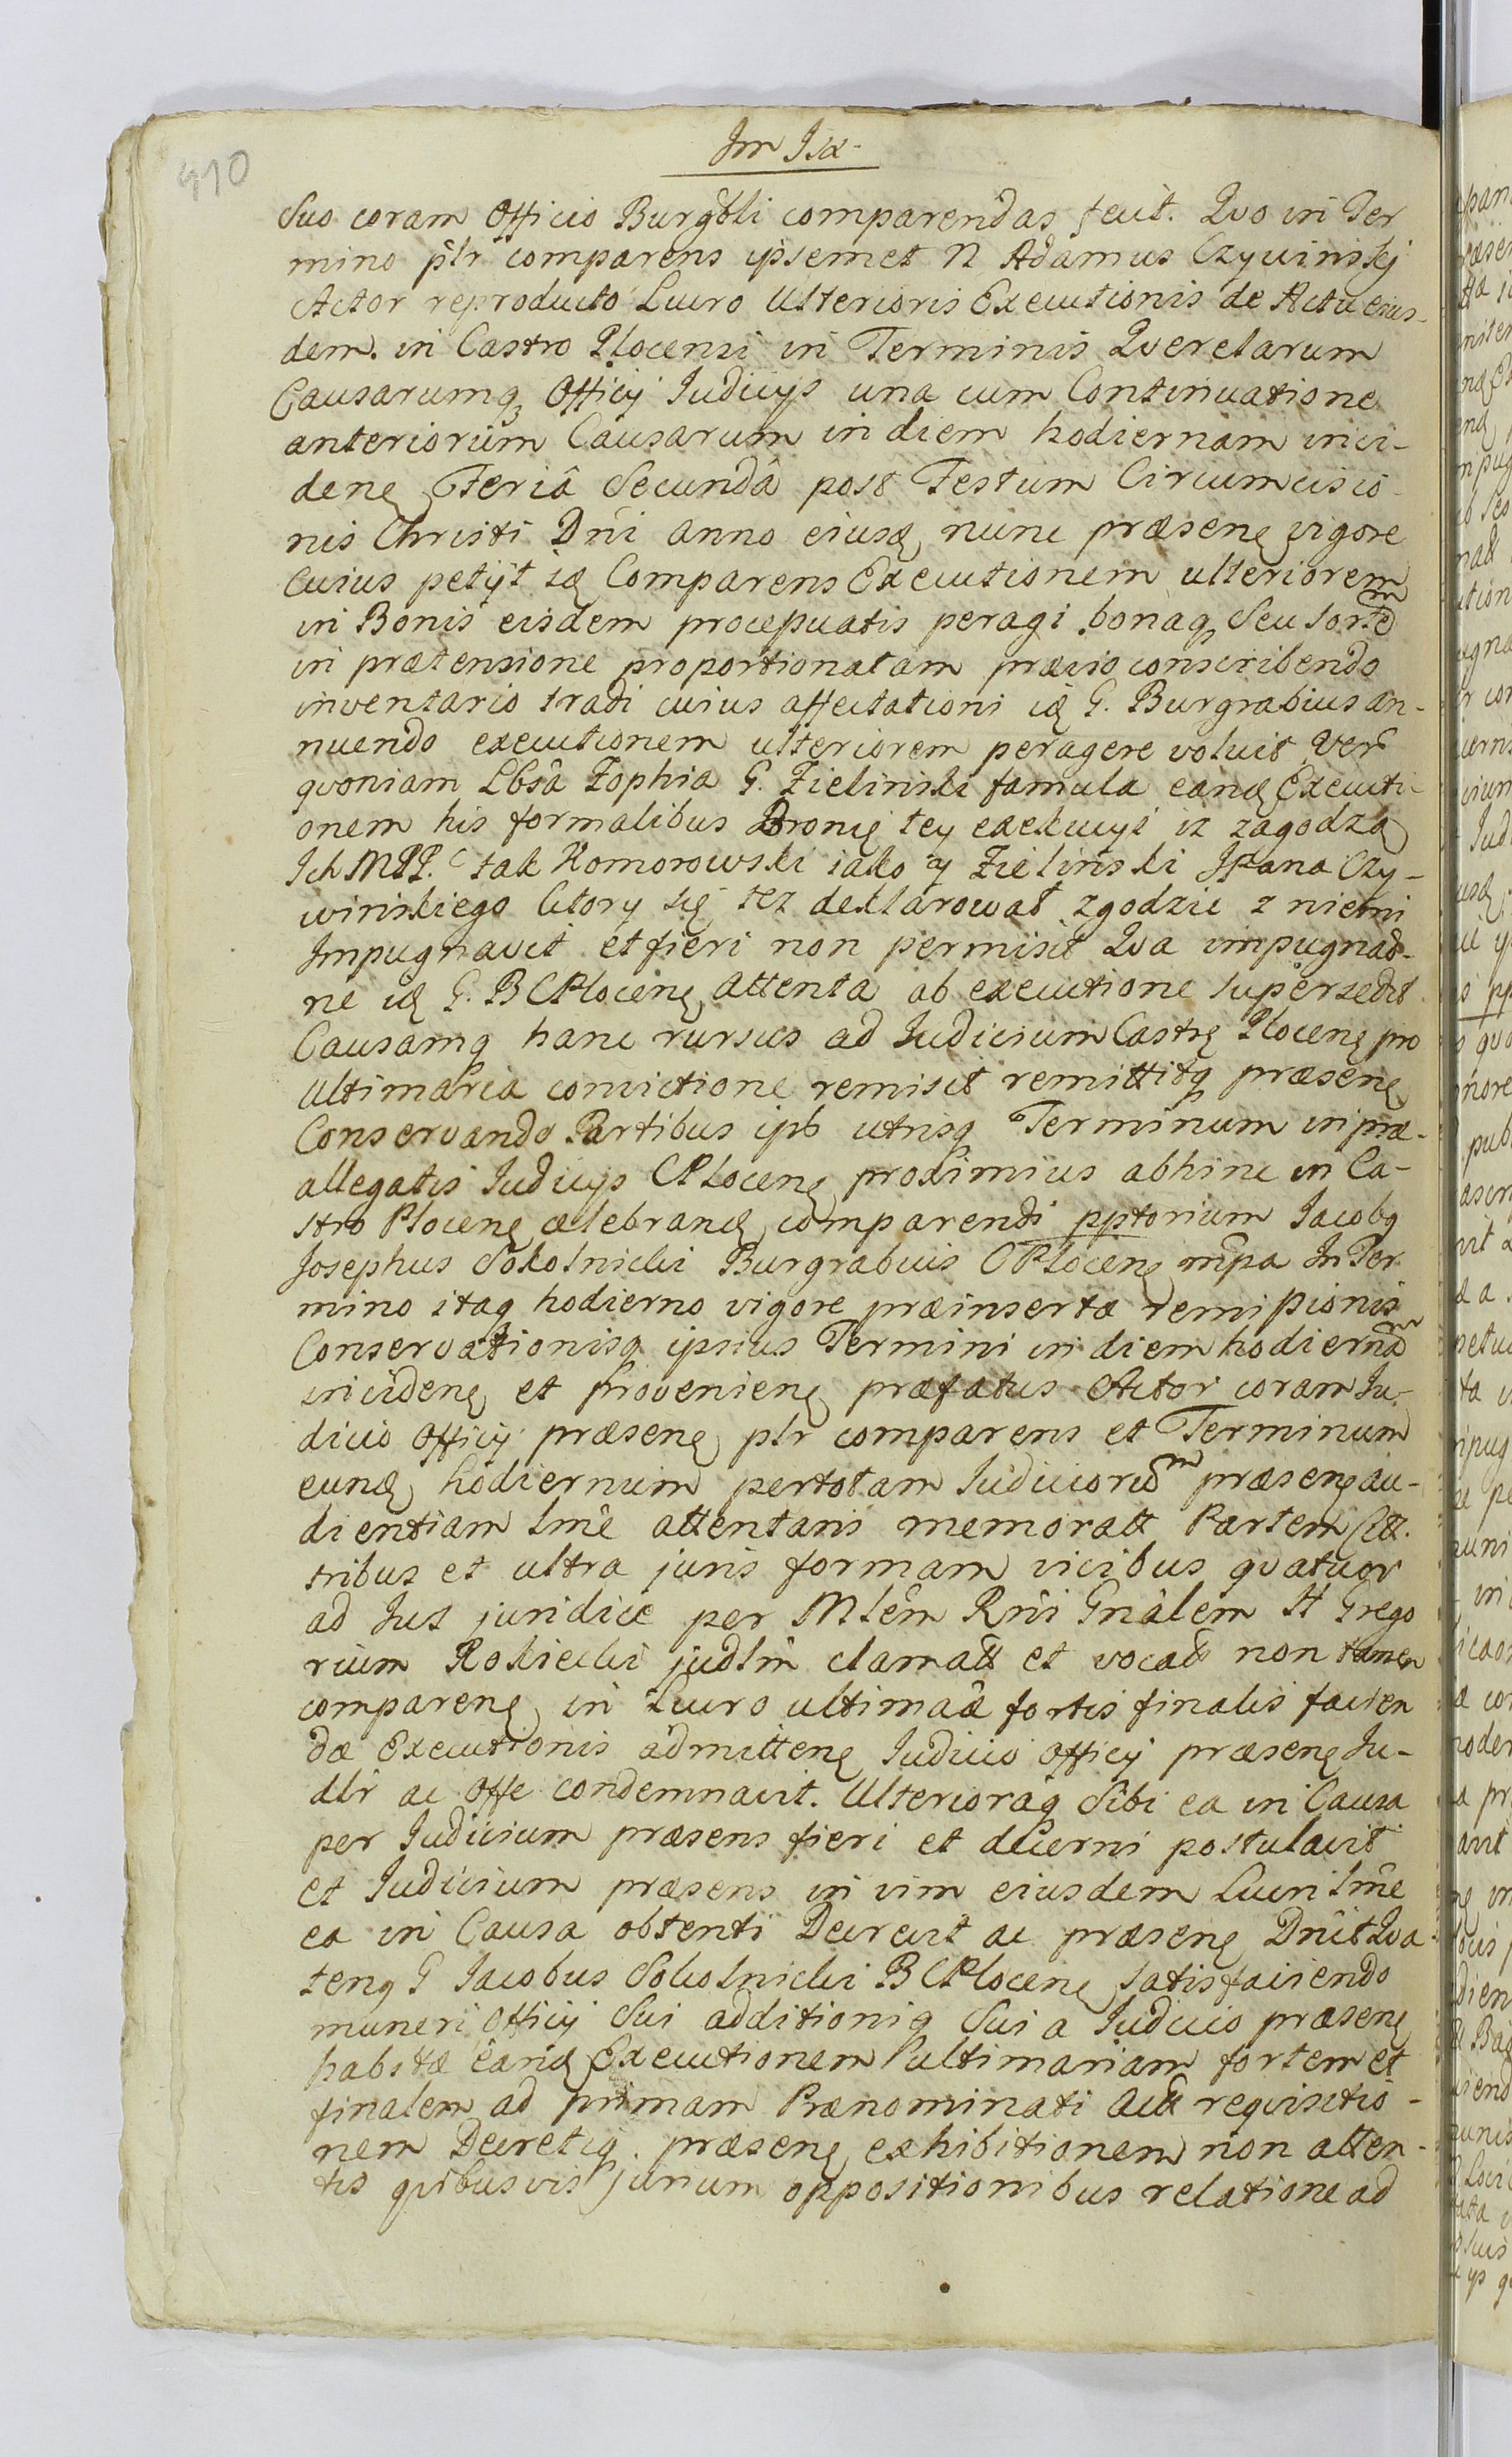 410
Im Isa-
Suo coram Officio Burgbli comparendas fecit. Quo in Ter
mino plr comparens ipsemet N Adamus Czywinskj
Actor reproducto Lucro Ulterioris Executionis de Actu eius-
dem in Castro Plocensi in Terminis Querelarum
Causarumq Officij Iudicijs una cum Continuatione
anteriorum Causarum in diem hodiernam inci-
denę Feriâ Secundâ post Festum Circumcisio-
nis Christi Dni anno eiusd nunc præsenę vigore
Cuius petijt id Comparens Executionem ulteriorem
in Bonis eisdem procepuatis peragi bonaq Seu Sortem
in prætensione proportionatam prævio conscribendo
inventario tradi cuius affectationi id G. Burgrabius an-
nuendo executionem ulteriorem peragere voluit Verum
quoniam Lbsâ Zophia G. Zielinski famula eand Executi-
onem his formalibus Bronię tey exekucyi iz zagodzą
Ich MPP. tak Komorowski iako y Zielinski JPana Czy-
winskiego ktory się tez deklarował zgodzic z niemi
Impugnavit et fieri non permisit Qua impugnao-
ne id G. B CPlocenę attenta ab executione supersedit
Causamq hanc rursus ad Iudicium Castrę Plocenę pro
Ultimaria convictione remisit remittitq præsenę
Conservando Partibus ipb utrisq Terminum in præ-
allegatis Iudicijs CPlocenę proximius abhinc in Ca-
stro Plocenę celebrand comparendi pptorium Jacobq
Josephus Sokolnicki Burgrabius CPlocenę mpa In Ter
mino itaq hodierno vigore præinsertæ remissionis
Conservationisq ipsius Termini in diem hodiernam
incidenę et provenienę præfatus Actor coram Iu-
dicio Officij præsenę plr comparens et Terminum
eund hodiernum per totam Iudiciorum præsenę au-
dientiam lmê attentans memoratt Partem Citt.
tribus et ultra juris formam vicibus quatuor
ad Jus juridice per Mlêm Rni Gnâlem H Grego
rium Rokicki judlm clamatt et vocatt non tamen
comparenę in Lucro ultimaâ fortis finalis facien
dæ Executionis admittenę Iudicio Officij præsenę Iu-
dlr ac Offe condemnavit. Ulterioraq Sibi ea in Causa
per Iudicium præsens fieri et decerni postulavit
et Iudicium præsens in vim eiusdem Lucri lmê
ea in Causa obtenti Decrevit ac præsenę Dnit Qua-
tenq G Jacobus Sokolnicki B CPlocenę satisfaciendo
muneri Officij Sui additioniq Sui a Iudicio præsenę
habitæ eand Executionem ultimariam fortem et
finalem ad primam Prænominati Actt requisitio-
nem Decretiq præsenę exhibitionem non atten-
tis quibusvis Jurium oppositionibus relatione ad